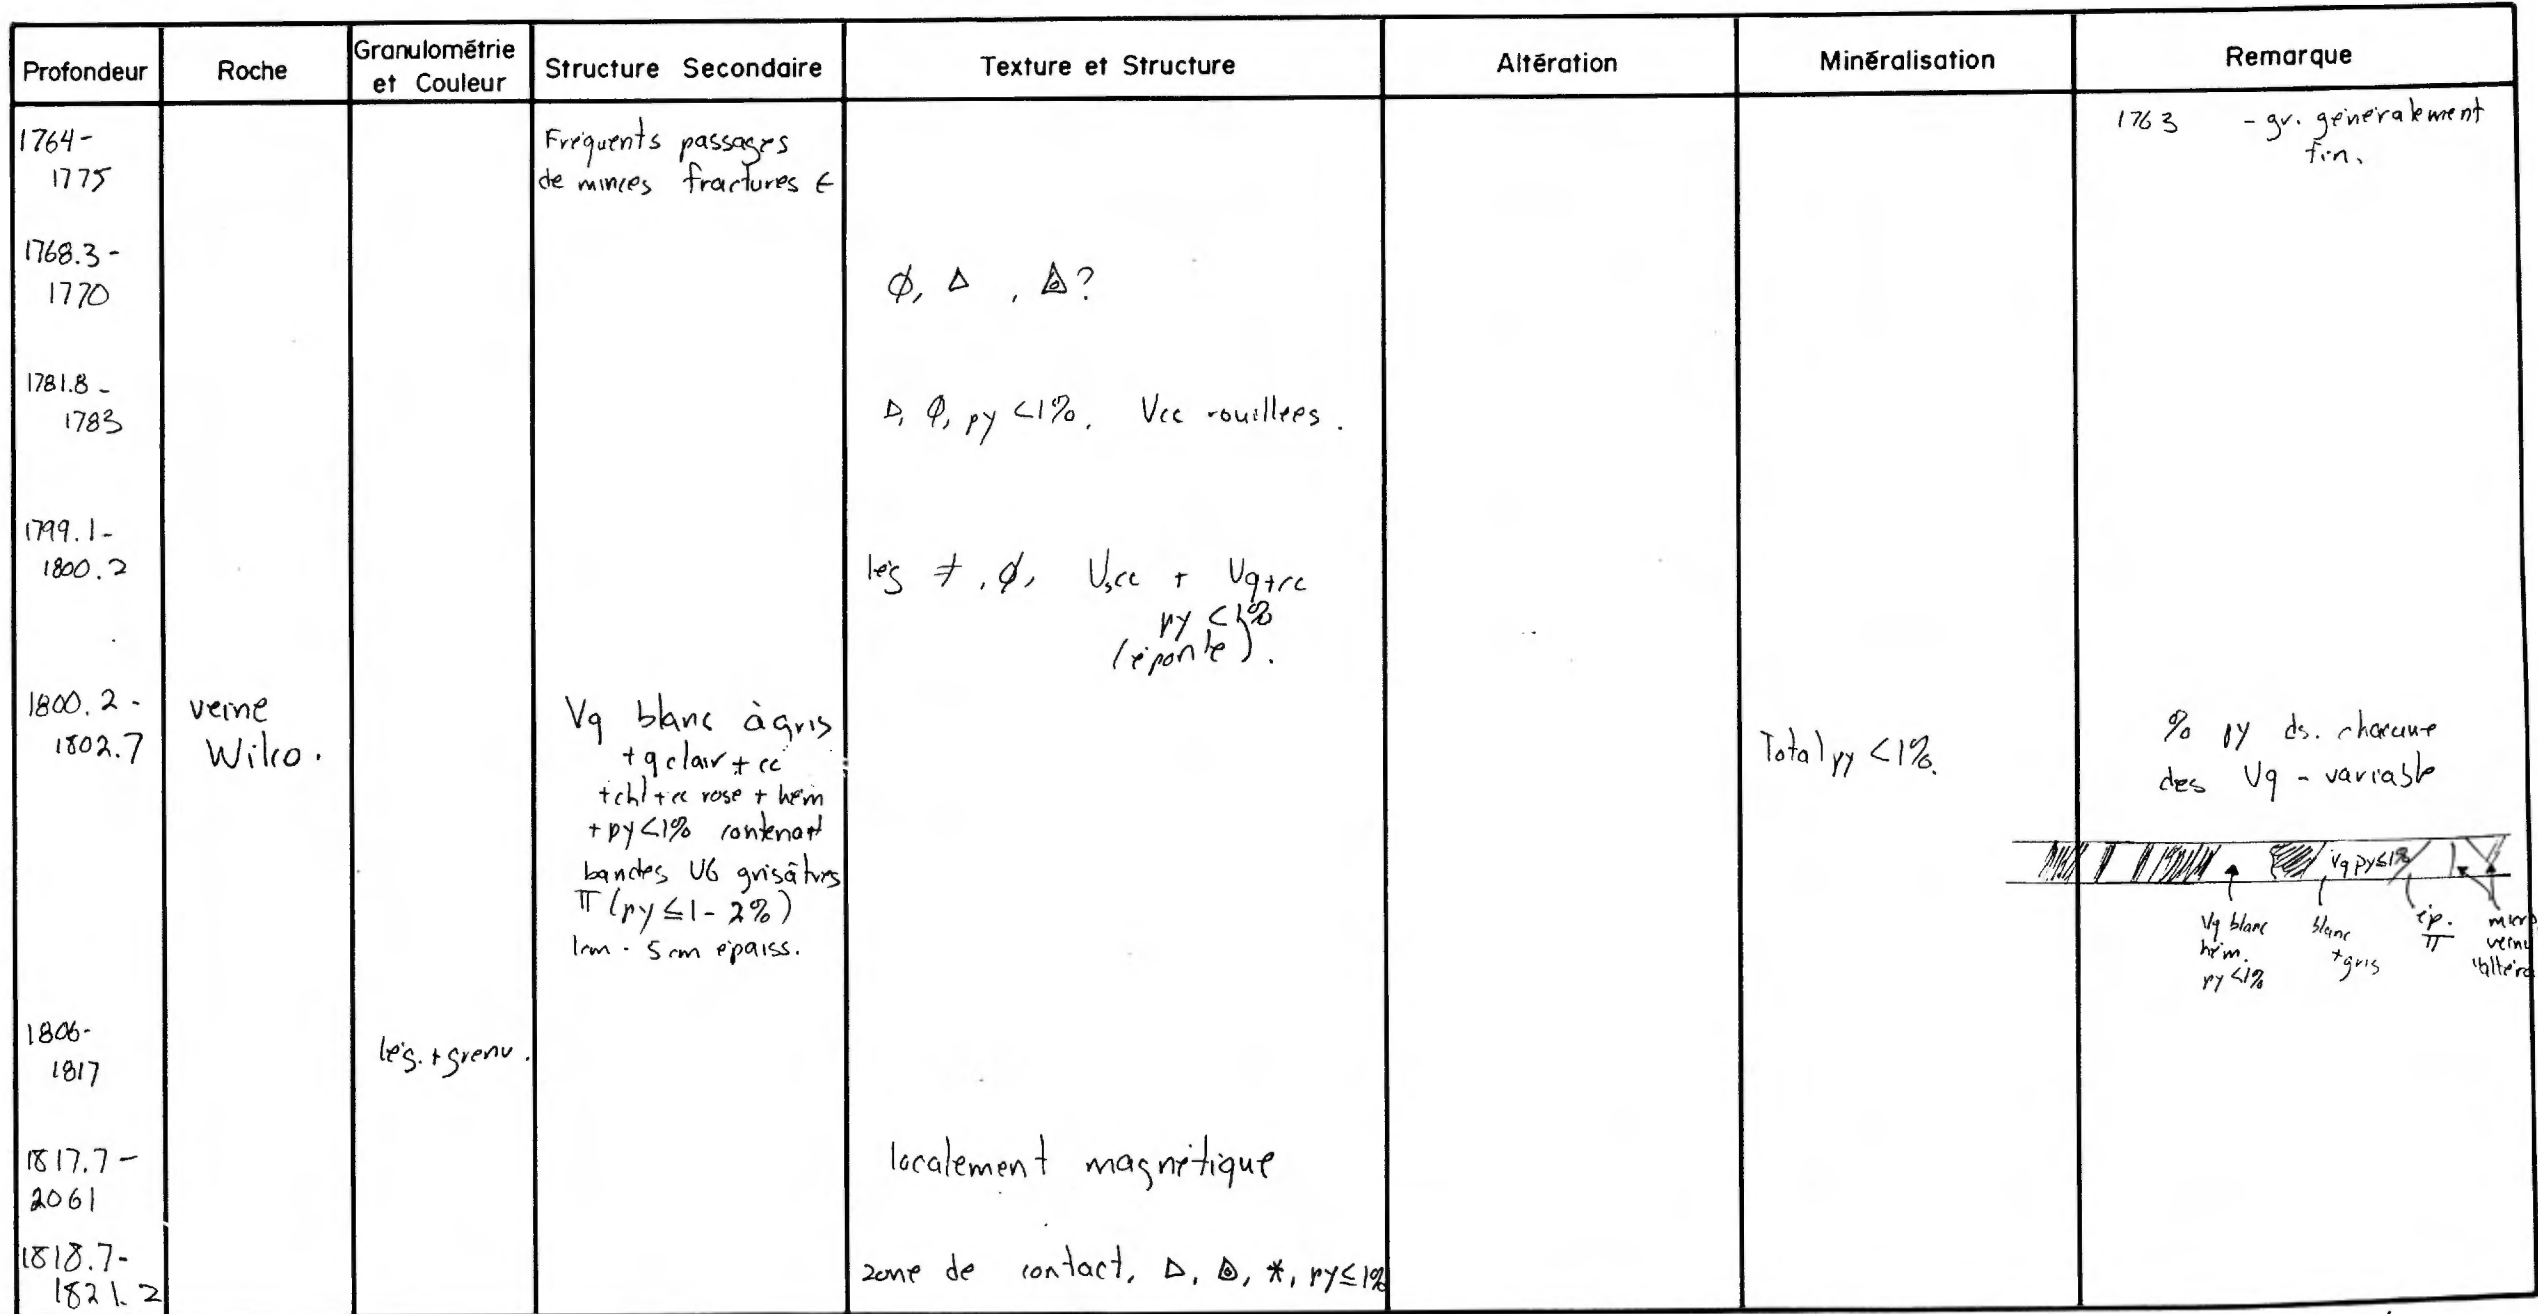 Profondeur
Roche
Granulométrie
et Couleur
Structure Secondaire
Texture et Structure
Altération
Minéralisation
Remarque
1764-
1775
Fréquents passages
de minces fractures €
1763 - gr. généralement
fin.
1768.3-
1770
ϕ, Δ , ?
1781.8 -
1783
Δ, ϕ, py <1%. Vcc rouillées.
1799.1-
1800.2
lég ≠, ϕ, Vscc + Vq+cc
py <1%
(éponte).
1800.2 -
1802.7
veine
Wilco.
Vq blanc à gris
+ q clair + cc
+chl+cc rose + hém
+ py<1% contenant
bandes V6 grisâtres
π (py ≤ 1 - 2%)
1cm - 5 cm épaiss.
Total py <1%.
% py ds. chacune
des Vq - variable
Vq py≤1%
Vq blanc
hém.
py <1%
blanc
+gris
ép.
π
micro
veine
1806-
1817
lég. + grenu.
1817.7 -
2061
localement magnétique
1818.7-
1821.2
zone de contact, Δ, *, py≤1%